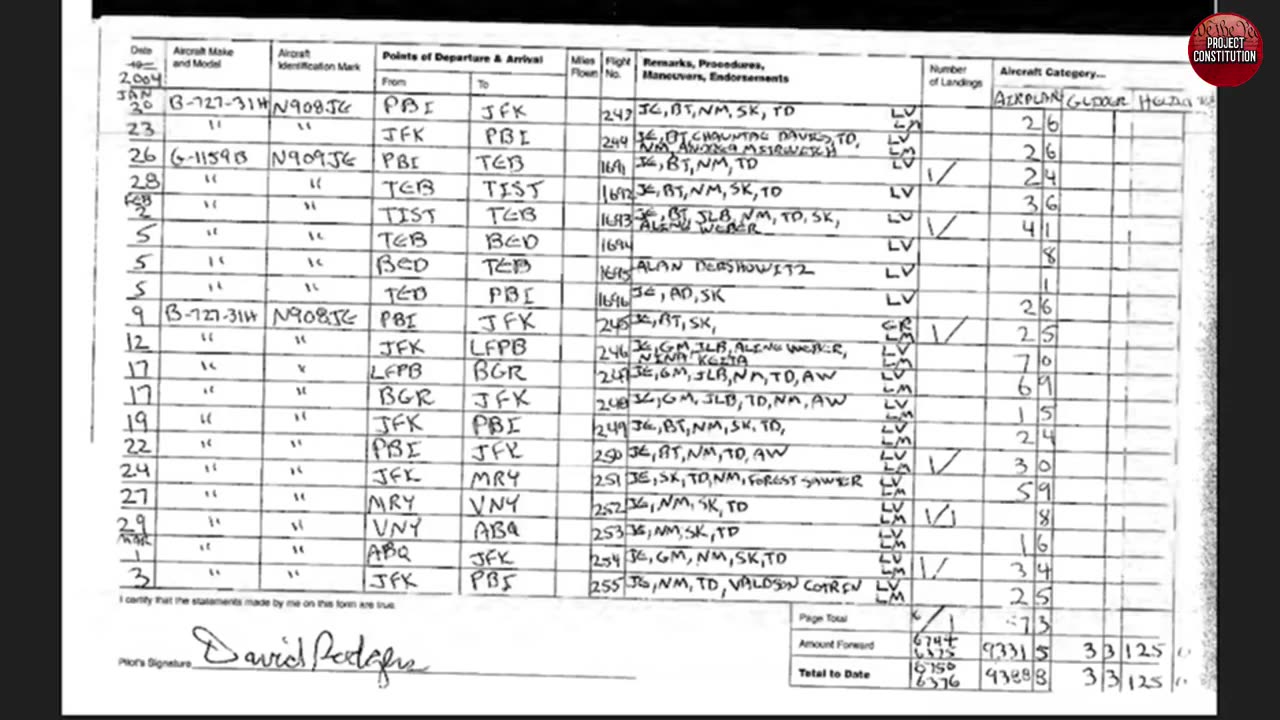 PROJECT
CONSTITUTION
Date Aircraft Make and Model Aircraft Identification Mark Points of Departure & Arrival From To Miles Flown Flight No. Remarks, Procedures, Maneuvers, Endorsements Number of Landings Aircraft Category... AIRPLANE GLIDER
2004
JAN 20 B-727-31H N908JE PBI JFK 243 JE, BT, NM, SK, TD LV LM 2 6
23 " " JFK PBI 244 JE, BT, CHAUNTAE DAVIES, TD, NM, ANDREA LV LM 2 6
26 G-1159B N909JE PBI TEB 1691 JE, BT, NM, TD LV 1/ 2 4
28 " " TEB TIST 1692 JE, BT, NM, SK, TD LV 3 6
FEB 2 " " TIST TEB 1693 JE, BT, JLB, NM, TD, SK, ALINE WEBER LV 1/ 4 1
5 " " TEB BED 1694 LV 8
5 " " BED TEB 1695 ALAN DERSHOWITZ LV 1
5 " " TEB PBI 1696 JE, AD, SK LV 2 6
9 B-727-31H N908JE PBI JFK 245 JE, BT, SK, GR LM 1/ 2 5
12 " " JFK LFPB 246 JE, GM, JLB, ALINE WEBER, NINA KEITA LV LM 7 0
17 " " LFPB BGR 247 JE, GM, JLB, NM, TD, AW LV LM 6 9
17 " " BGR JFK 248 JE, GM, JLB, TD, NM, AW LV LM 1 5
19 " " JFK PBI 249 JE, BT, NM, SK, TD, LV LM 2 4
22 " " PBI JFK 250 JE, BT, NM, TD, AW LV LM 1/ 3 0
24 " " JFK MRY 251 JE, SK, TD, NM, FOREST SAWYER LV LM 5 9
27 " " MRY VNY 252 JE, NM, SK, TD LV LM 1/1 8
29 " " VNY ABQ 253 JE, NM, SK, TD LV LM 1 6
MAR 1 " " ABQ JFK 254 JE, GM, NM, SK, TD LV LM 1/ 3 4
3 " " JFK PBI 255 JE, NM, TD, VALDSON COTRIN LV LM 2 5
I certify that the statements made by me on this form are true.
Page Total 6/1 57 3
Amount Forward 6744 6375 9331 5 3 3 125
Pilot's Signature David Rodgers
Total to Date 6750 6376 9388 8 3 3 125